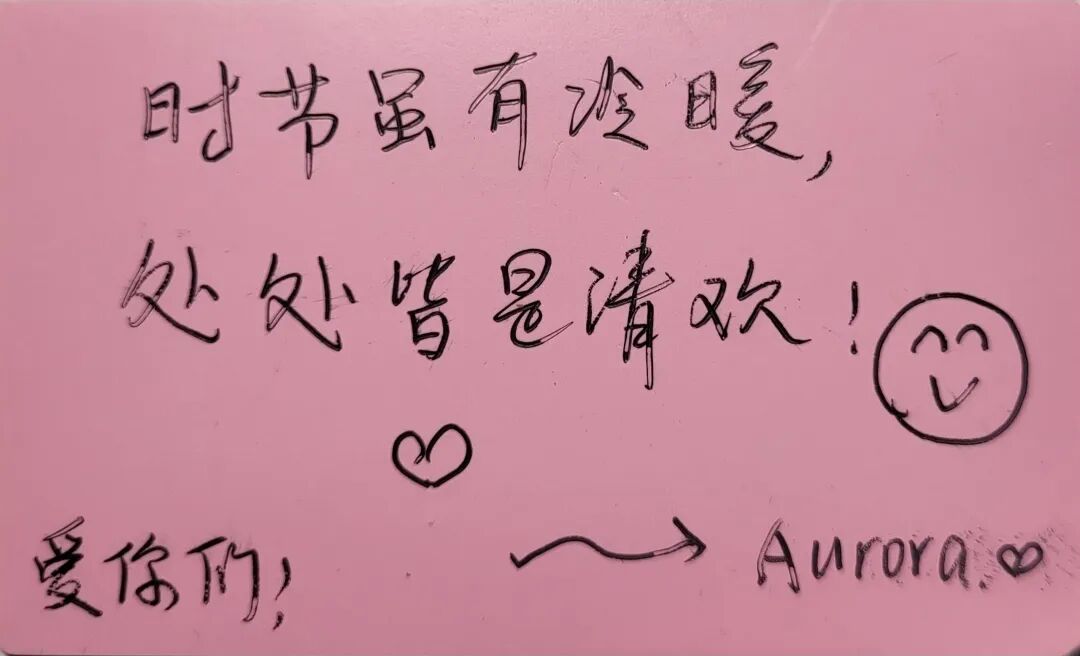 时节虽有冷暖,
处处皆是清欢!
爱你们!
Aurora.